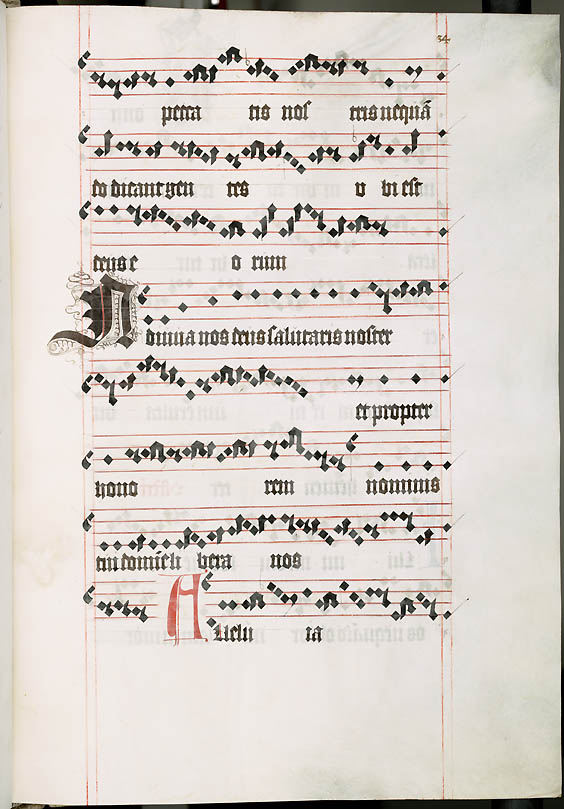 34
pecca tis nos tris nequā
do dicant gen tes v bi est
deus e o rum
Adiuua nos deus salutaris noster
et propter
hono rem nominis
tui domīe li bera nos
Allelu ia